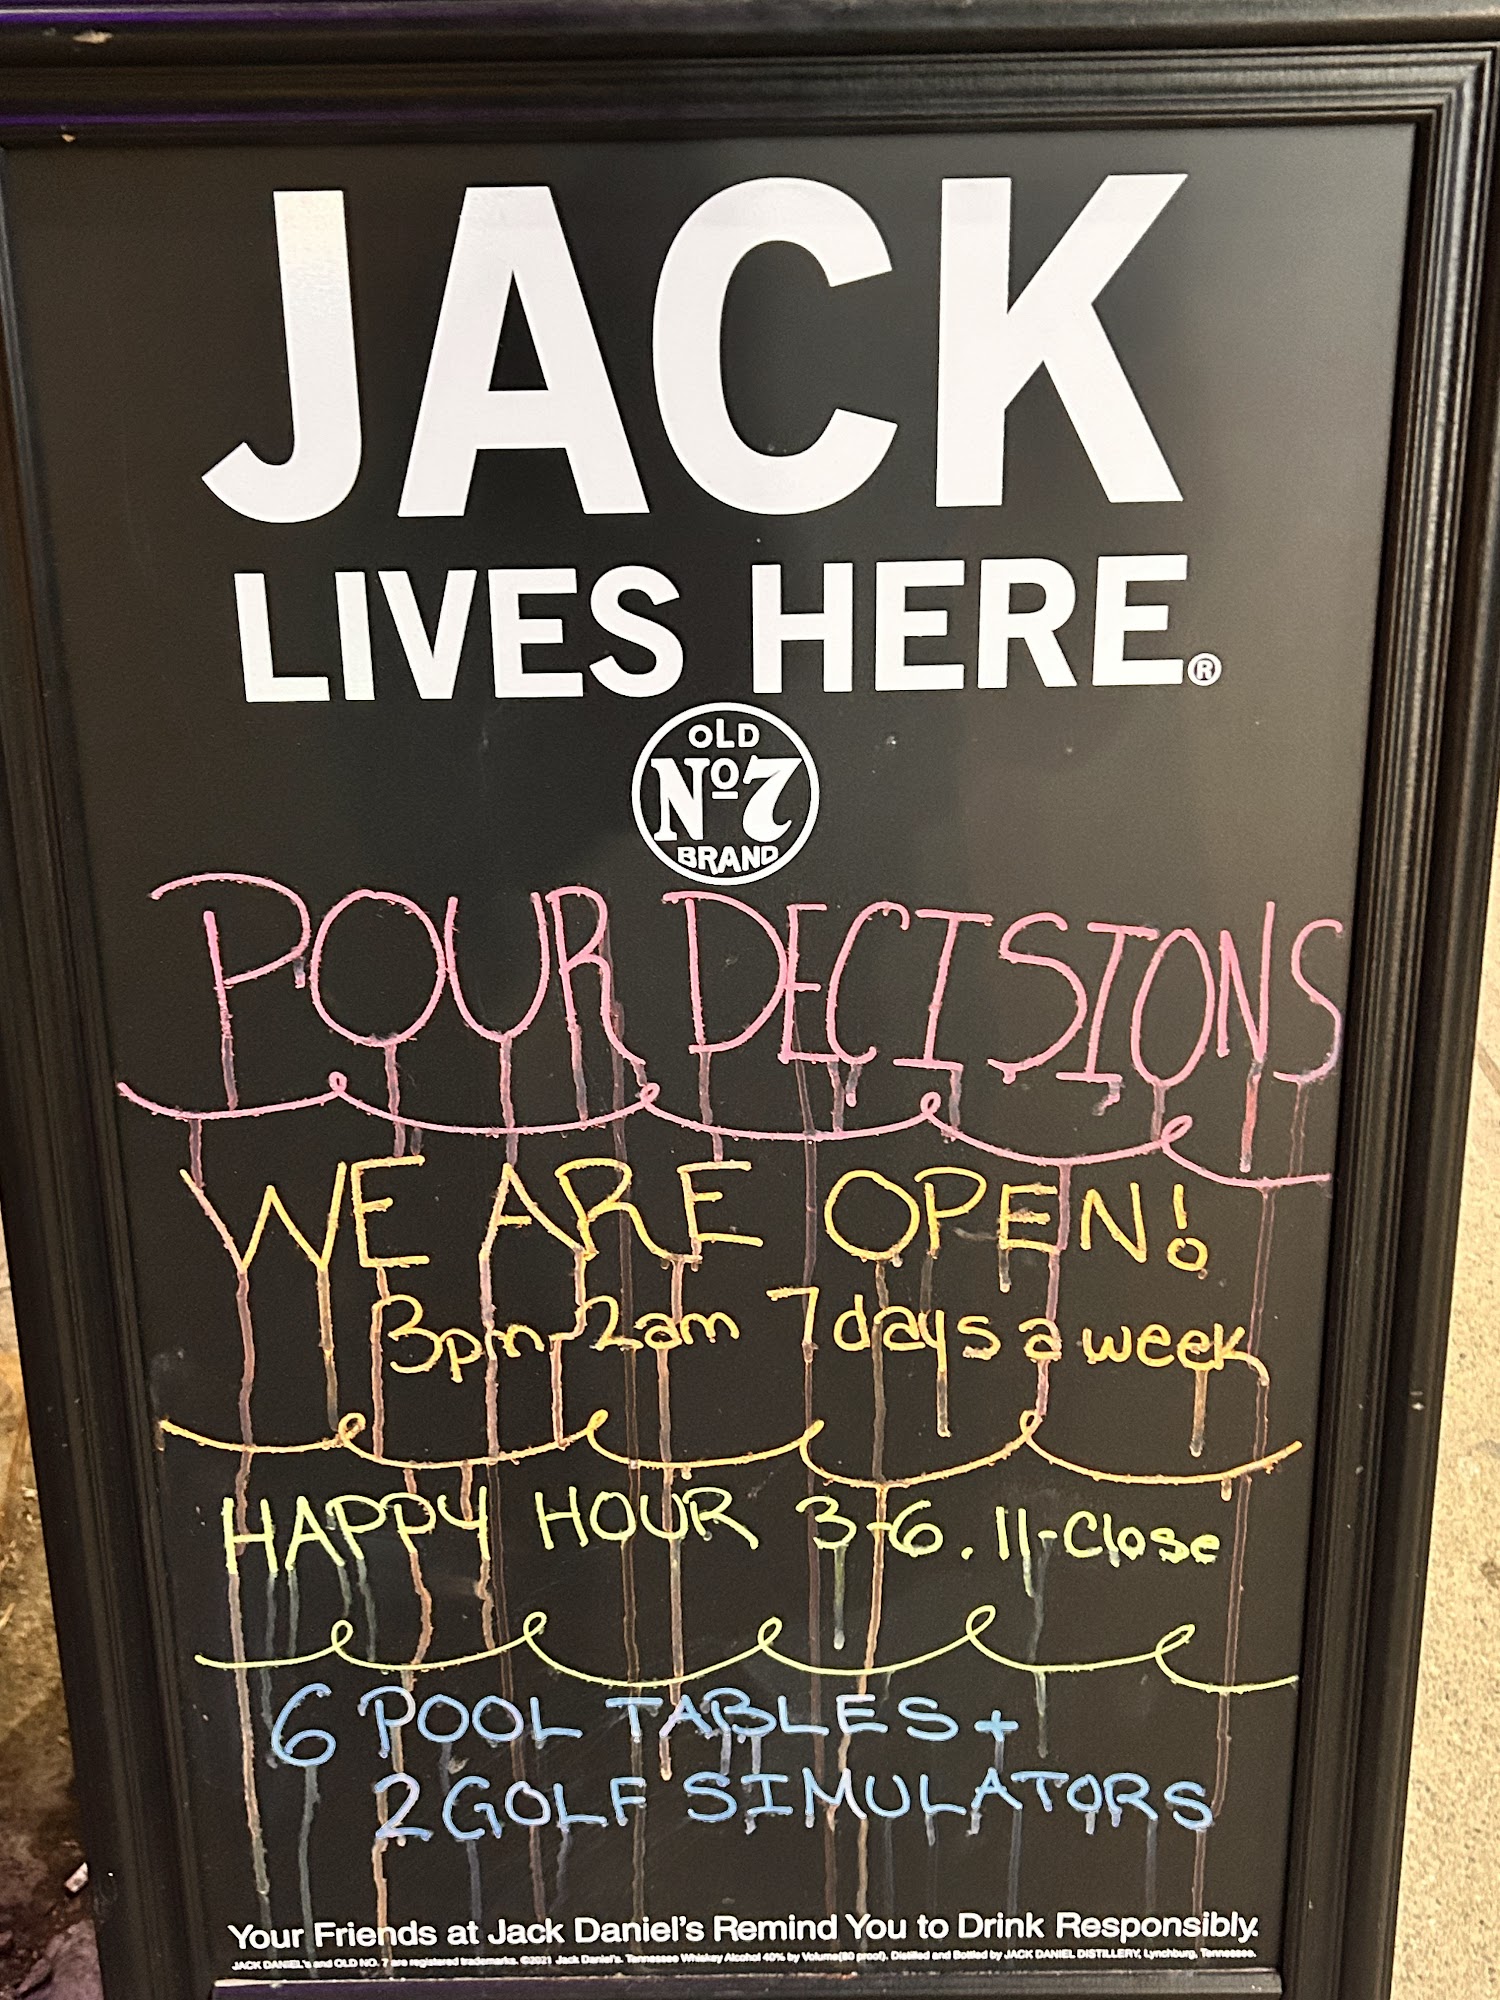 JACK
LIVES HERE®
OLD
Nº7
BRAND
POUR DECISIONS
WE ARE OPEN!
3pm-2am 7 days a week
HAPPY HOUR 3-6. 11-Close
6 POOL TABLES +
2 GOLF SIMULATORS
Your Friends at Jack Daniel's Remind You to Drink Responsibly.
JACK DANIEL'S and OLD NO. 7 are registered trademarks. ©2021 Jack Daniel's. Tennessee Whiskey Alcohol 40% by Volume(80 proof). Distilled and Bottled by JACK DANIEL DISTILLERY, Lynchburg, Tennessee.